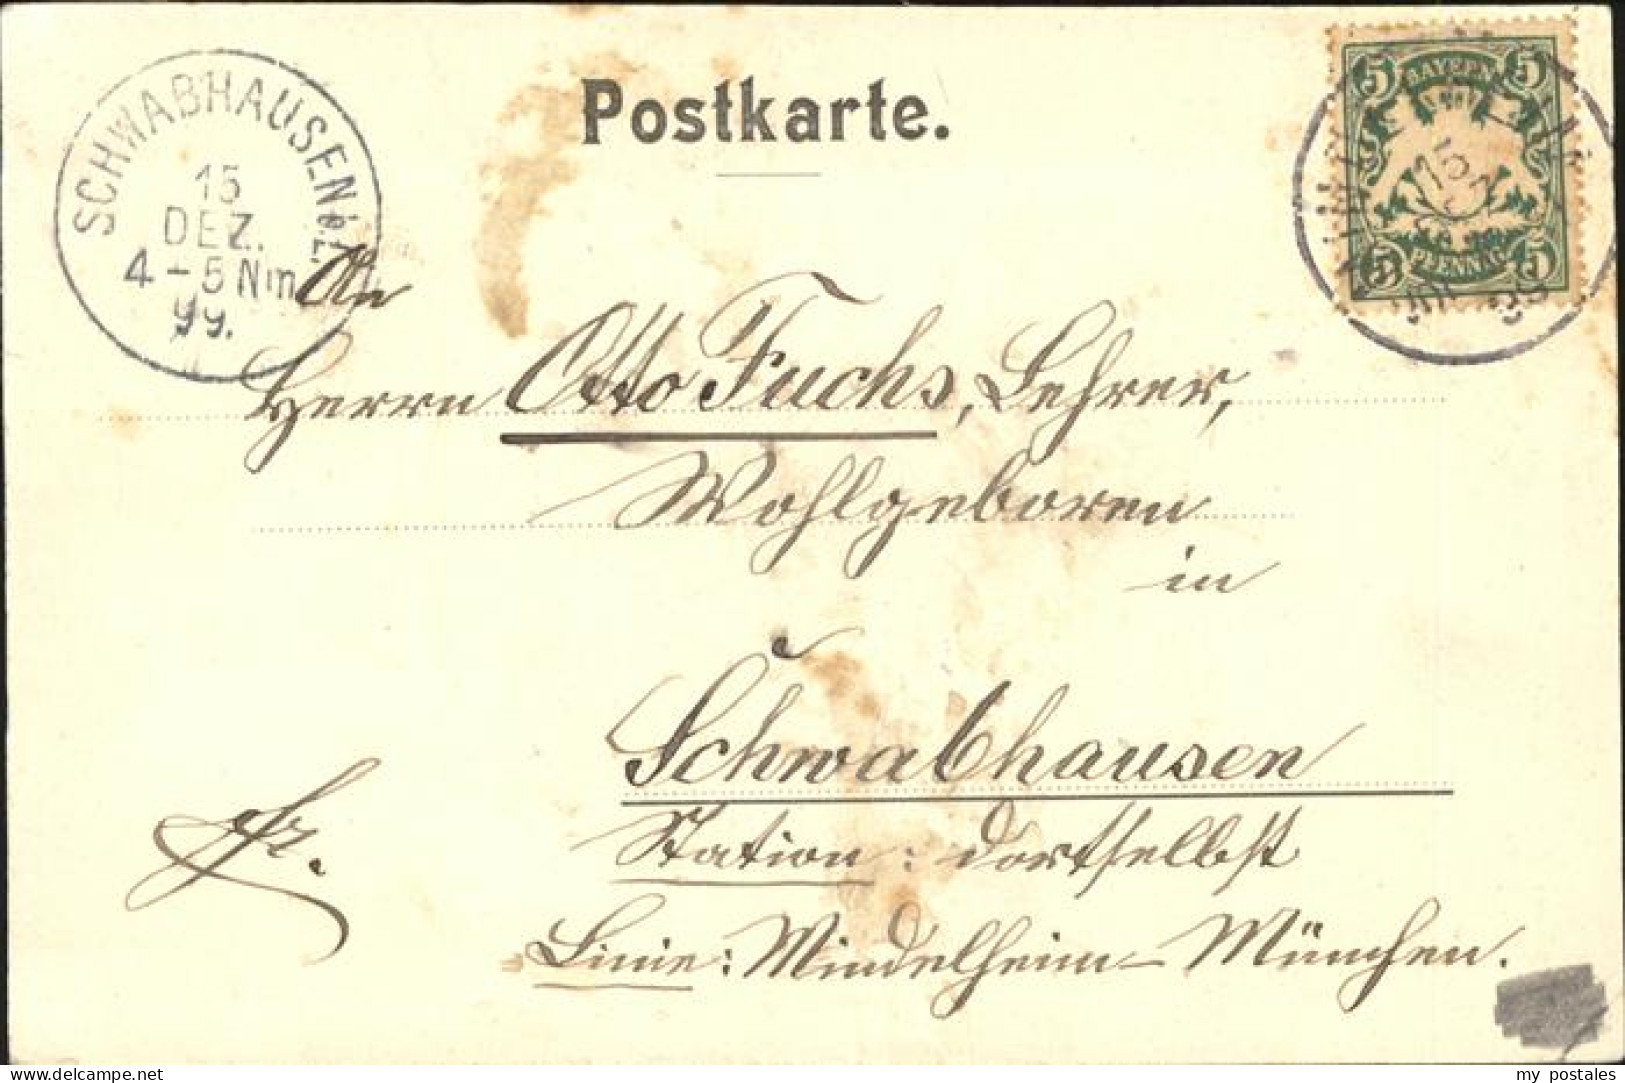 Postkarte.
SCHWABHAUSEN
15
DEZ.
4-5 Nm
99.
BAYERN
5 5
5 5
PFENNIG
An
Herrn Otto Fuchs, Lehrer,
Wohlgeboren
in
Schwabhausen
Station: dortselbst
Linie: Mindelheim-München.
fr.
my postales